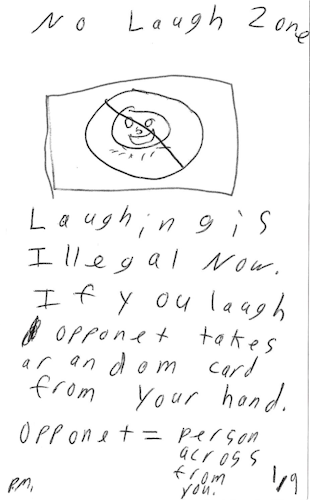 No Laugh Zone
Laughing is
Illegal Now.
If you laugh
opponet takes
a random card
from your hand.
Opponet = person
across
from
you.
P.M.
1/9